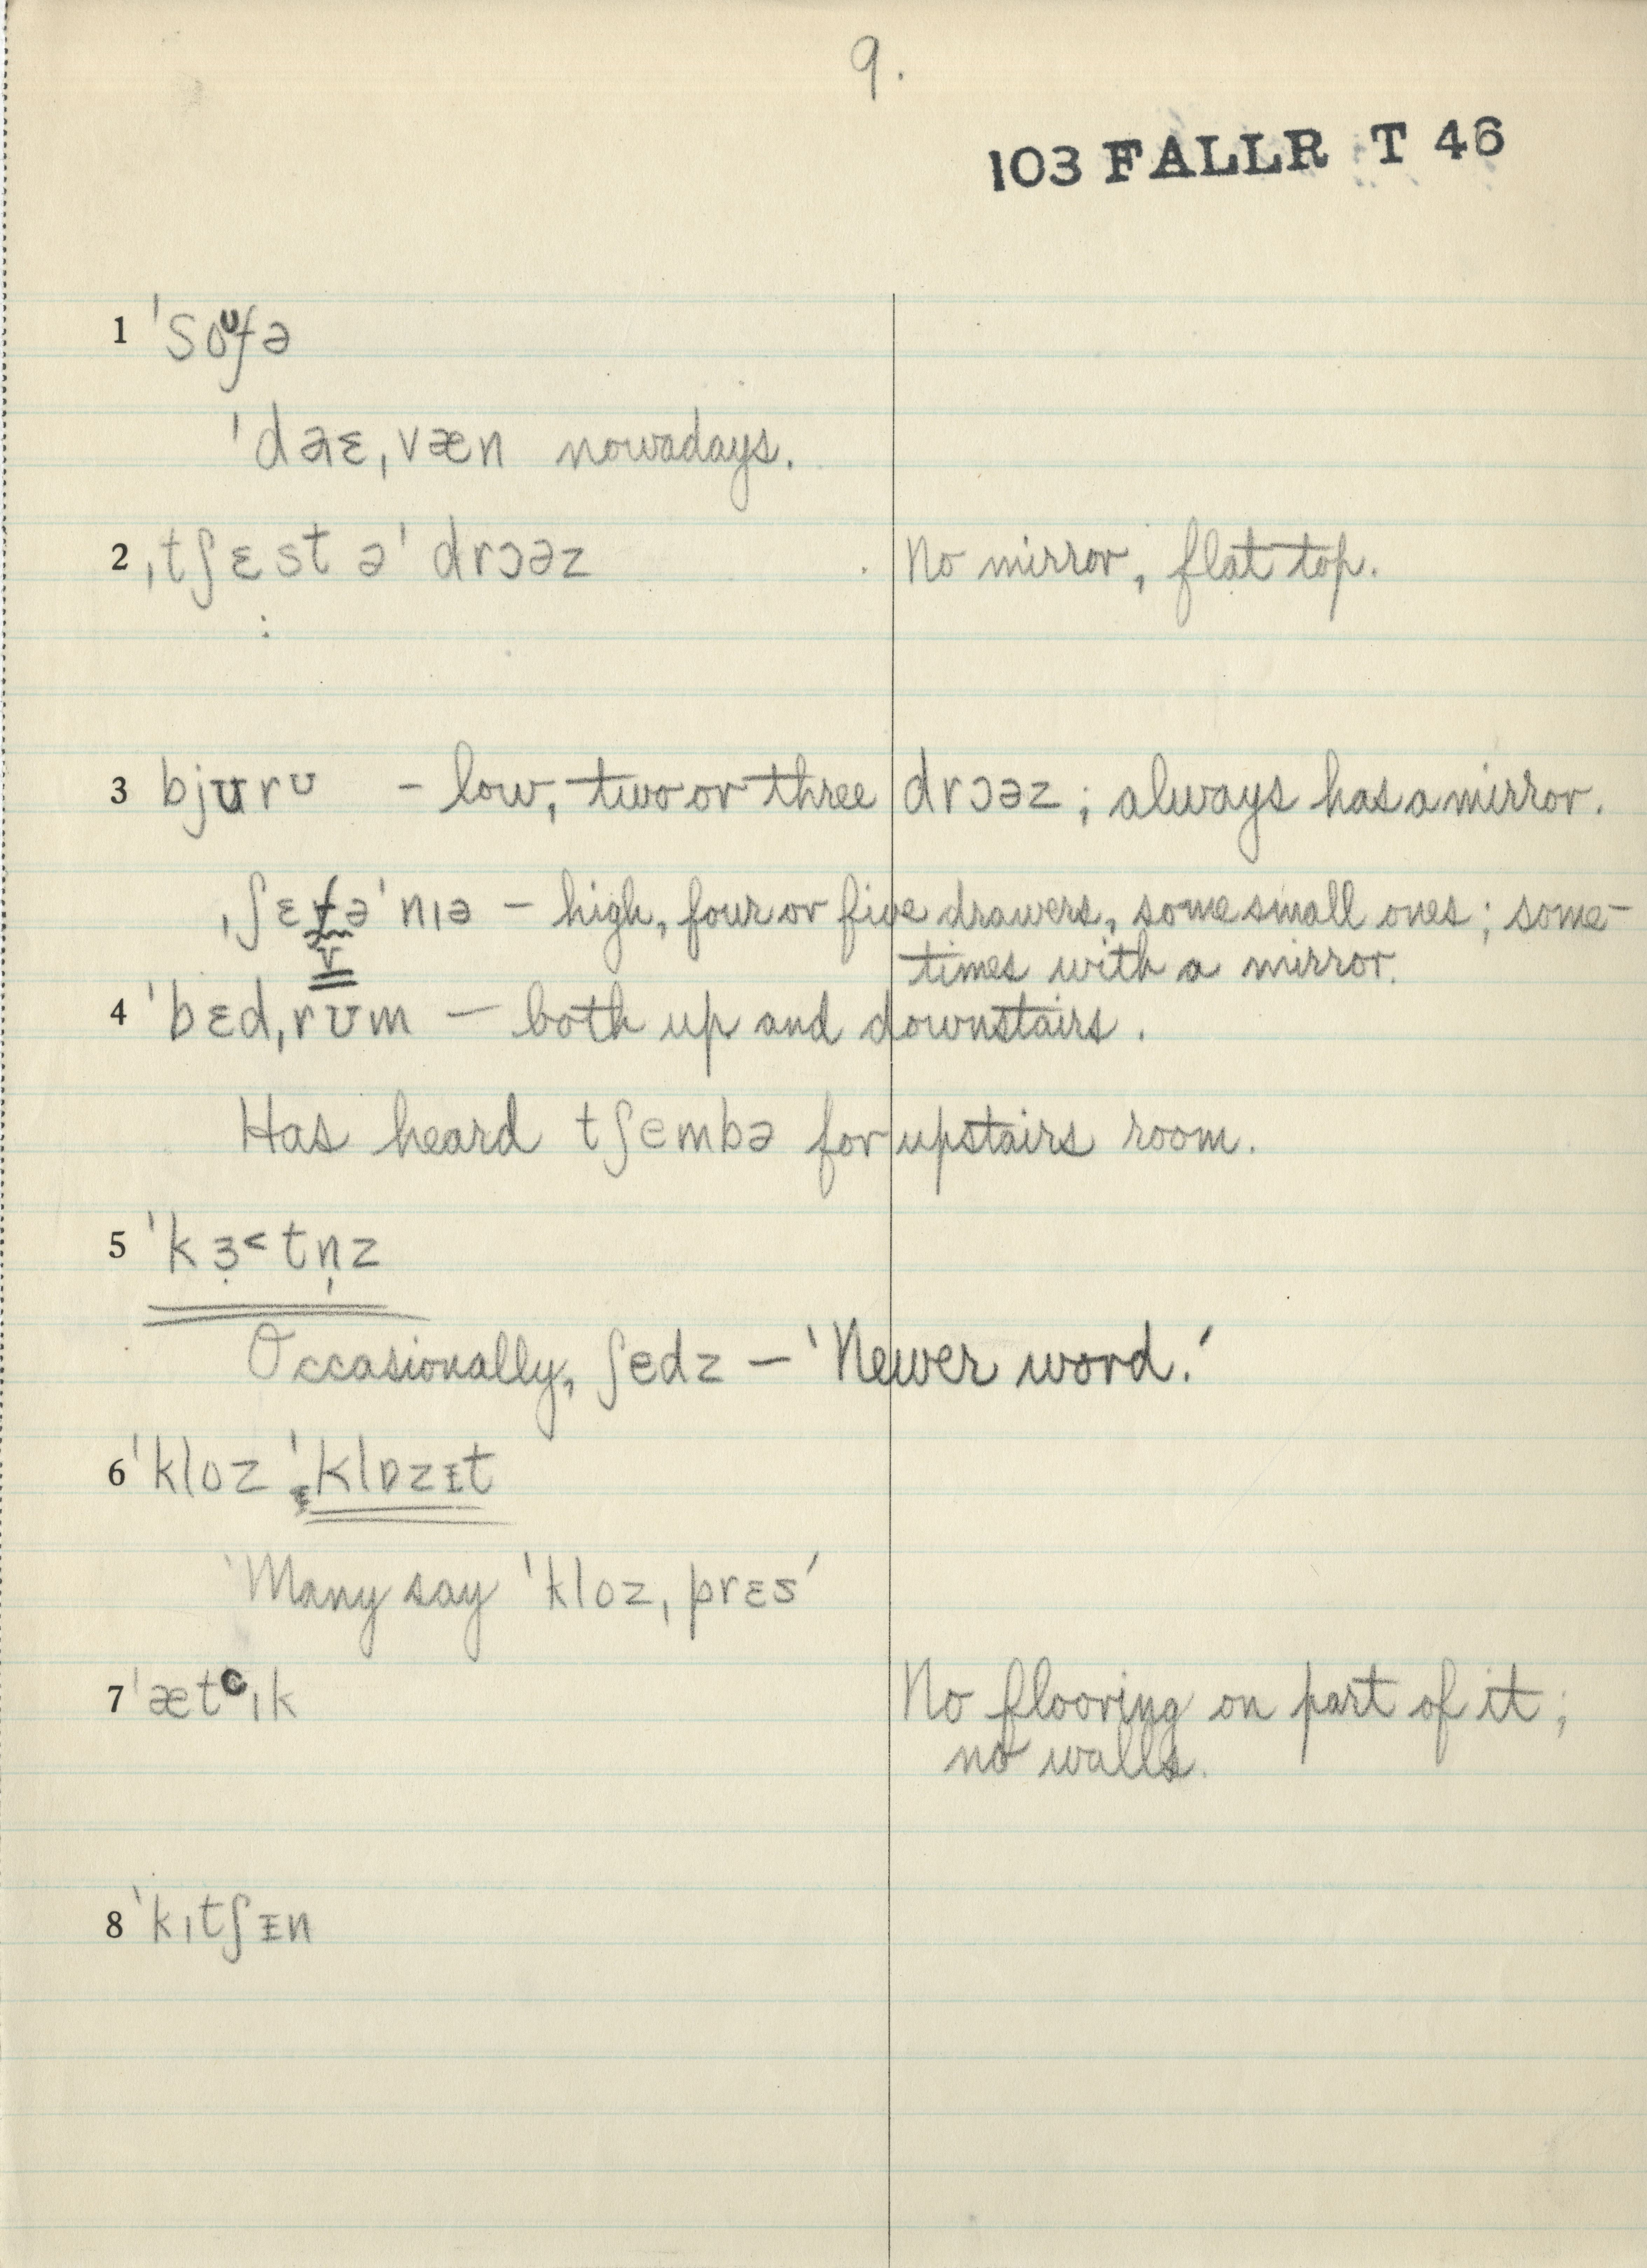 9.
103 FALLR T 46
1 ˈsoᶷfə
ˈdaɛˌvæn nowadays.
2 ˌtʃɛst əˈ drɔəz No mirror, flat top.
3 bjʊrʊ – low, two or three drɔəz; always has a mirror.
ˌʃɛfəˈnɪə – high, four or five drawers, some small ones; some-
v
times with a mirror.
4 ˈbɛdˌrʊm – both up and downstairs.
Has heard tʃembə for upstairs room.
5 ˈkɜ̣˂tn̩z
Occasionally, ʃedz – 'Newer word.'
6 ˈkloz ˈklɒzɪt
'Many say ˈklozˌprɛs'
7 ˈætᶜɪk No flooring on part of it;
no walls.
8 ˈkɪtʃɪn